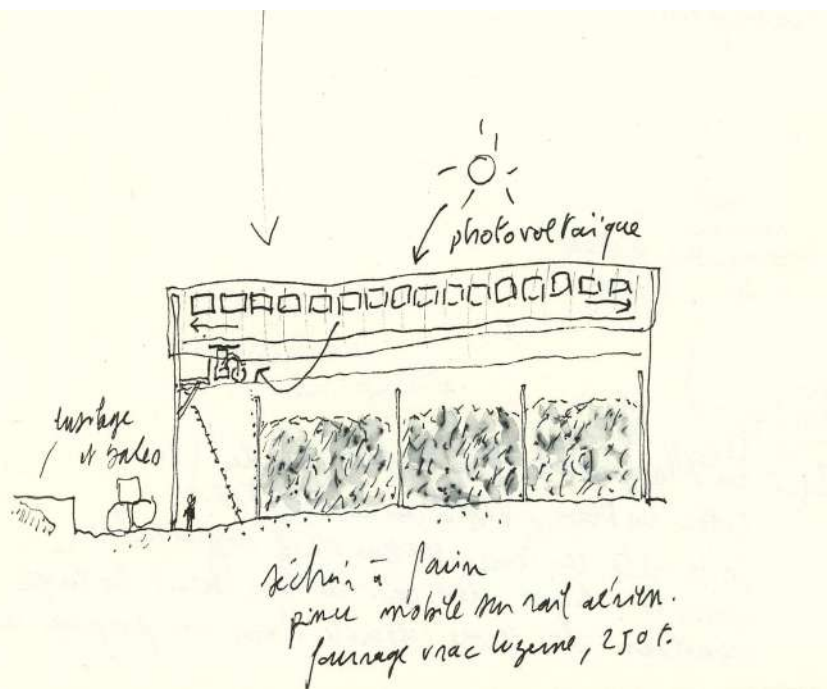 photovoltaïque
ensilage
et bales
séchoir à foin
pince mobile sur rail aérien.
fourrage vrac luzerne, 250 t.